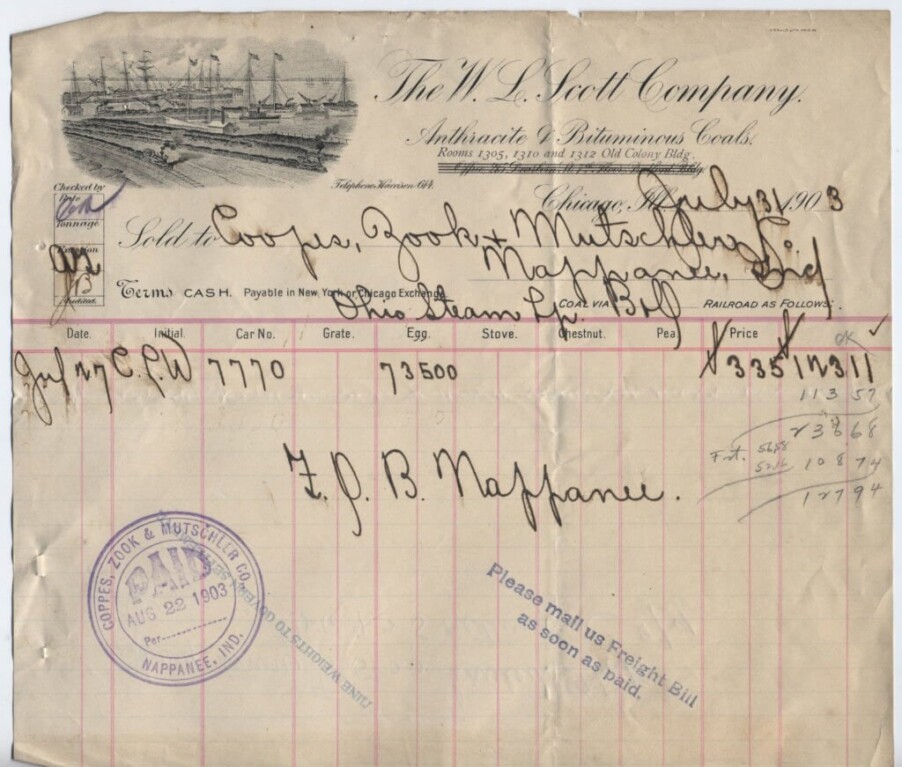 The W. L. Scott Company.
Anthracite & Bituminous Coals.
Rooms 1305, 1310 and 1312 Old Colony Bldg.
Telephone Harrison 614.
Checked by
Date
Tonnage
Chicago, Ill. July 31 1903
Sold to Coopes, Zook & Mutschler Co
Nappanee, Ind
Terms CASH. Payable in New York or Chicago Exchange
Ohio Steam Lp.
COAL VIA B&O RAILROAD AS FOLLOWS:
Date. Initial. Car No. Grate. Egg. Stove. Chestnut. Pea Price OK ✓
Jul 27 C.L.W 7770 73500 $335 $12311
11357
23668
Frt. 5658
5216 10874
12794
F. O. B. Nappanee.
COPPES, ZOOK & MUTSCHLER CO.
PAID
AUG 22 1903
Per
NAPPANEE, IND.
MINE WEIGHTS TO GOVERN
Please mail us Freight Bill
as soon as paid.